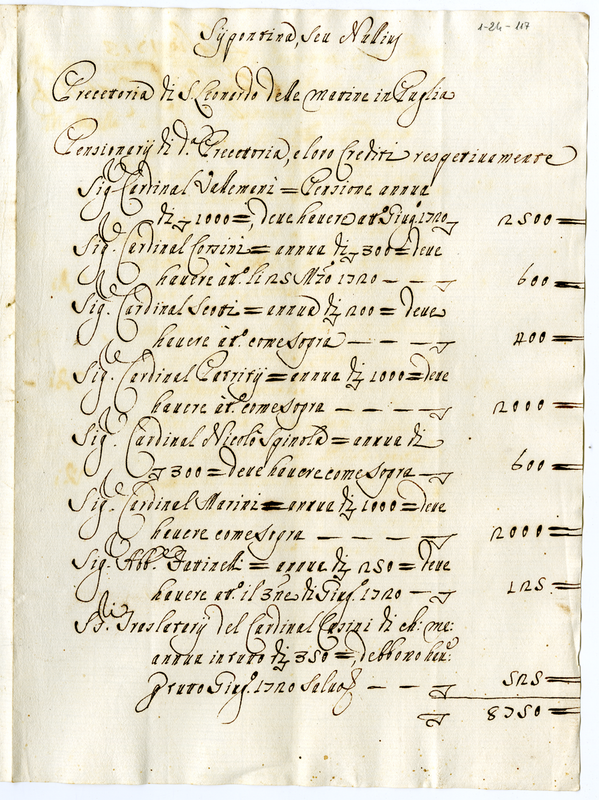 1-24-117
Sypontina, seu Nullius
Precettoria di S. Leonardo delle matine in Puglia
Pensionarij di d.ª Precettoria, e loro Crediti respetiuamente
Sig. Cardinal Vallemani = Pensione annua
di 1000 =, deue hauere a tt.º Giug.º 1720 2500 =
Sig. Cardinal Corsini = annua di 300 = deue
hauere à tt.º li 25 Mzo 1720 - - 600 =
Sig. Cardinal Scotti = annua di 200 = deue
hauere à tt.º come sopra - - - 400 =
Sig. Cardinal = annua di 1000 = deue
hauere à tt.º come sopra - - - - 2000 =
Sig. Cardinal Nicolò Spinola = annua di
300 = deue hauere come sopra - 600 =
Sig. Cardinal Marini = annua di 1000 = deue
hauere come sopra - - - - 2000 =
Sig. Abb.e = annua di 250 = deue
hauere a tt.º il 3ne di Giug.º 1720 - 125 =
SS.ri Traslatarij del Cardinal Casini di ch: me:
annua in tutto di 350 =, debbono hau:
P tutto Giug.º 1720 saluo - - 525 =
8750 =